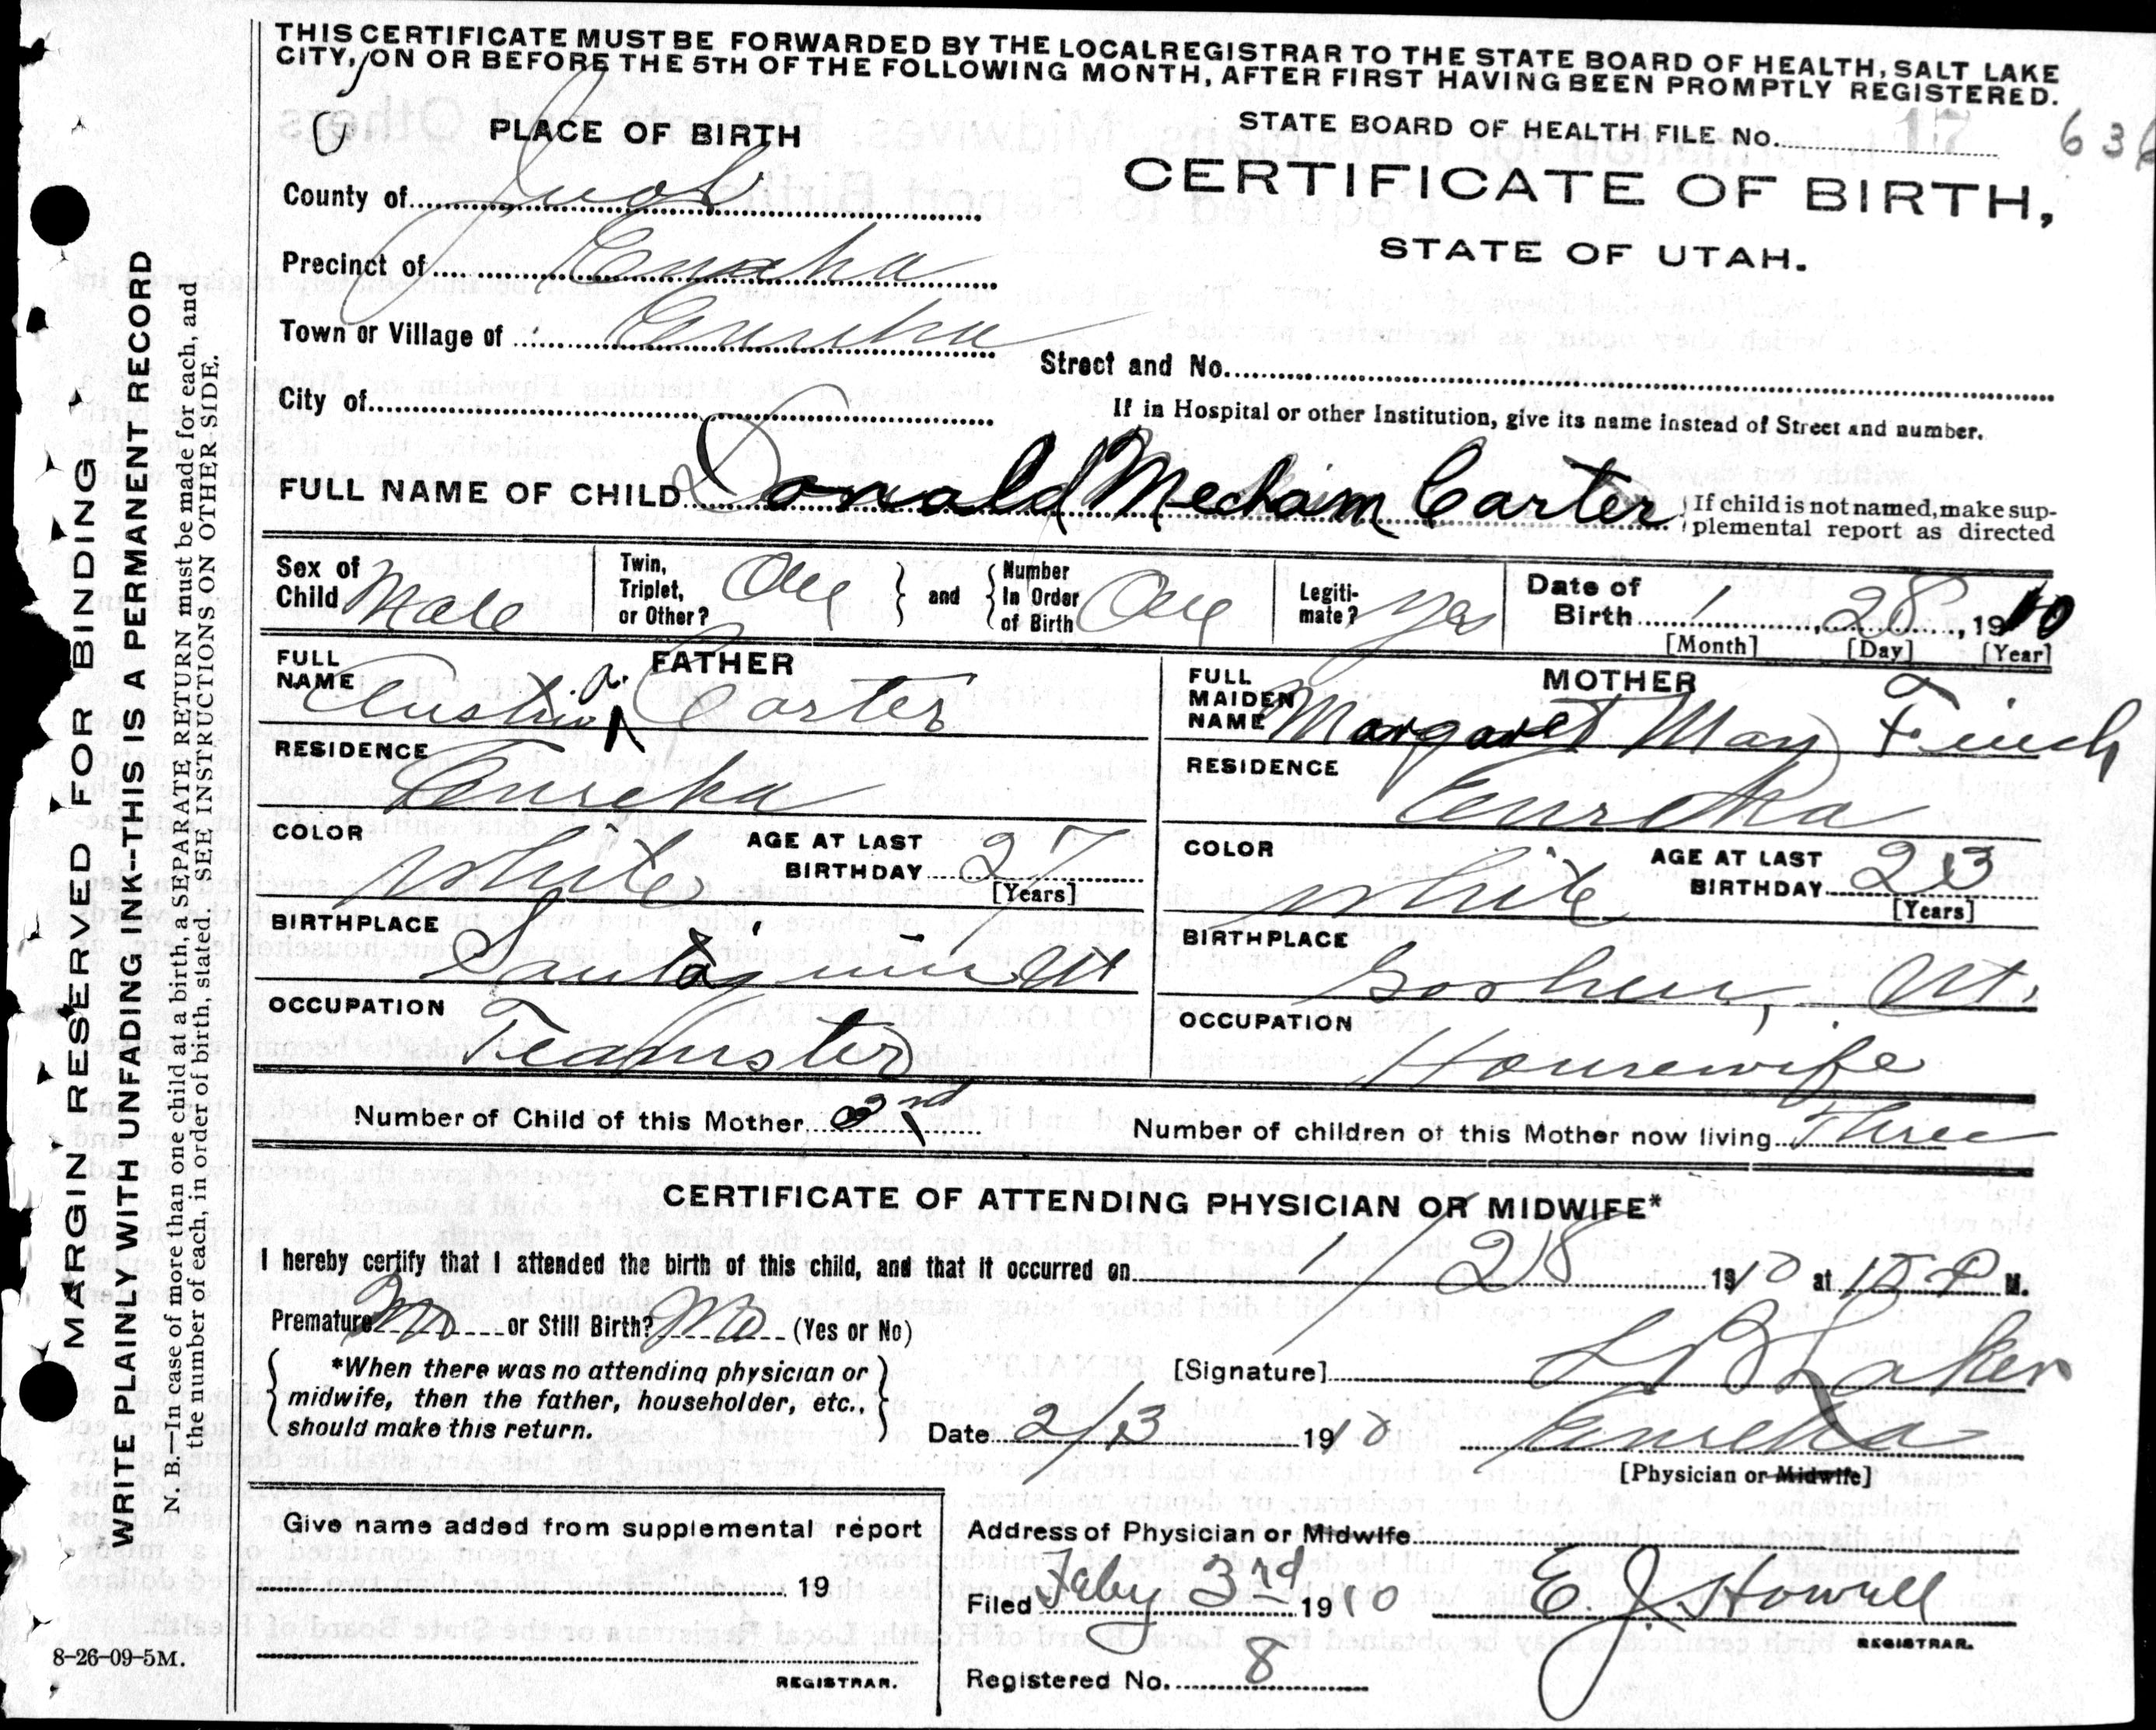 THIS CERTIFICATE MUST BE FORWARDED BY THE LOCAL REGISTRAR TO THE STATE BOARD OF HEALTH, SALT LAKE
CITY, ON OR BEFORE THE 5TH OF THE FOLLOWING MONTH, AFTER FIRST HAVING BEEN PROMPTLY REGISTERED.
PLACE OF BIRTH
STATE BOARD OF HEALTH FILE No. 17 636
CERTIFICATE OF BIRTH,
STATE OF UTAH.
County of Juab
Precinct of Eureka
Town or Village of Eureka
Street and No.
City of
If in Hospital or other Institution, give its name instead of Street and number.
FULL NAME OF CHILD Donald Mecham Carter
If child is not named, make sup-
plemental report as directed
Sex of Child Male
Twin, Triplet, or Other? One
and
Number In Order of Birth One
Legiti-mate? Yes
Date of Birth 1, 28, 1910
[Month] [Day] [Year]
FATHER
FULL NAME Austin A. Carter
RESIDENCE Eureka
COLOR White
AGE AT LAST BIRTHDAY 27
[Years]
BIRTHPLACE Santaquin Ut
OCCUPATION Teamster
MOTHER
FULL MAIDEN NAME Margaret May Finch
RESIDENCE Eureka
COLOR White
AGE AT LAST BIRTHDAY 23
[Years]
BIRTHPLACE Goshen, Ut.
OCCUPATION Housewife
Number of Child of this Mother 3rd
Number of children of this Mother now living Three
CERTIFICATE OF ATTENDING PHYSICIAN OR MIDWIFE*
I hereby certify that I attended the birth of this child, and that it occurred on 1/28 1910 at P M.
Premature No or Still Birth? No (Yes or No)
*When there was no attending physician or
midwife, then the father, householder, etc.,
should make this return.
[Signature] Laker
Date 2/3 1910 Eureka
[Physician or Midwife]
Give name added from supplemental report
19
REGISTRAR.
Address of Physician or Midwife
Filed Feby 3rd 1910 E. J. Howell
REGISTRAR.
Registered No. 8
8-26-09-5M.
MARGIN RESERVED FOR BINDING
WRITE PLAINLY WITH UNFADING INK--THIS IS A PERMANENT RECORD
N. B.—In case of more than one child at a birth, a SEPARATE RETURN must be made for each, and
the number of each, in order of birth, stated. SEE INSTRUCTIONS ON OTHER SIDE.